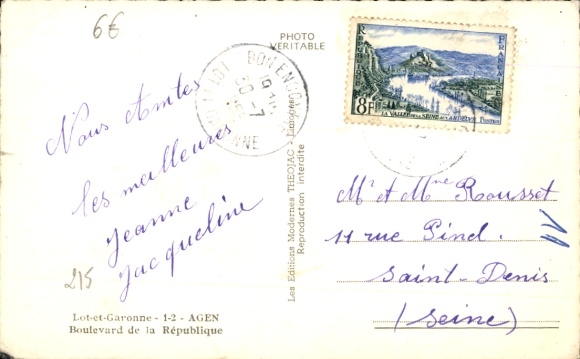 6€
PHOTO
VERITABLE
BON ENCONTRE
19
20-7
NNE
REPUBLIQUE
FRANCAISE
8F
LA VALLEE DE LA SEINE AUX ANDELYS POSTES
Nous
les meilleures
Jeanne
Jacqueline
215
Lot-et-Garonne - 1-2 - AGEN
Boulevard de la République
Les Editions Modernes THEOJAC - Limoges
Reproduction interdite
Mr et Mme Rousset
11 rue Pinel.
Saint-Denis
(Seine)